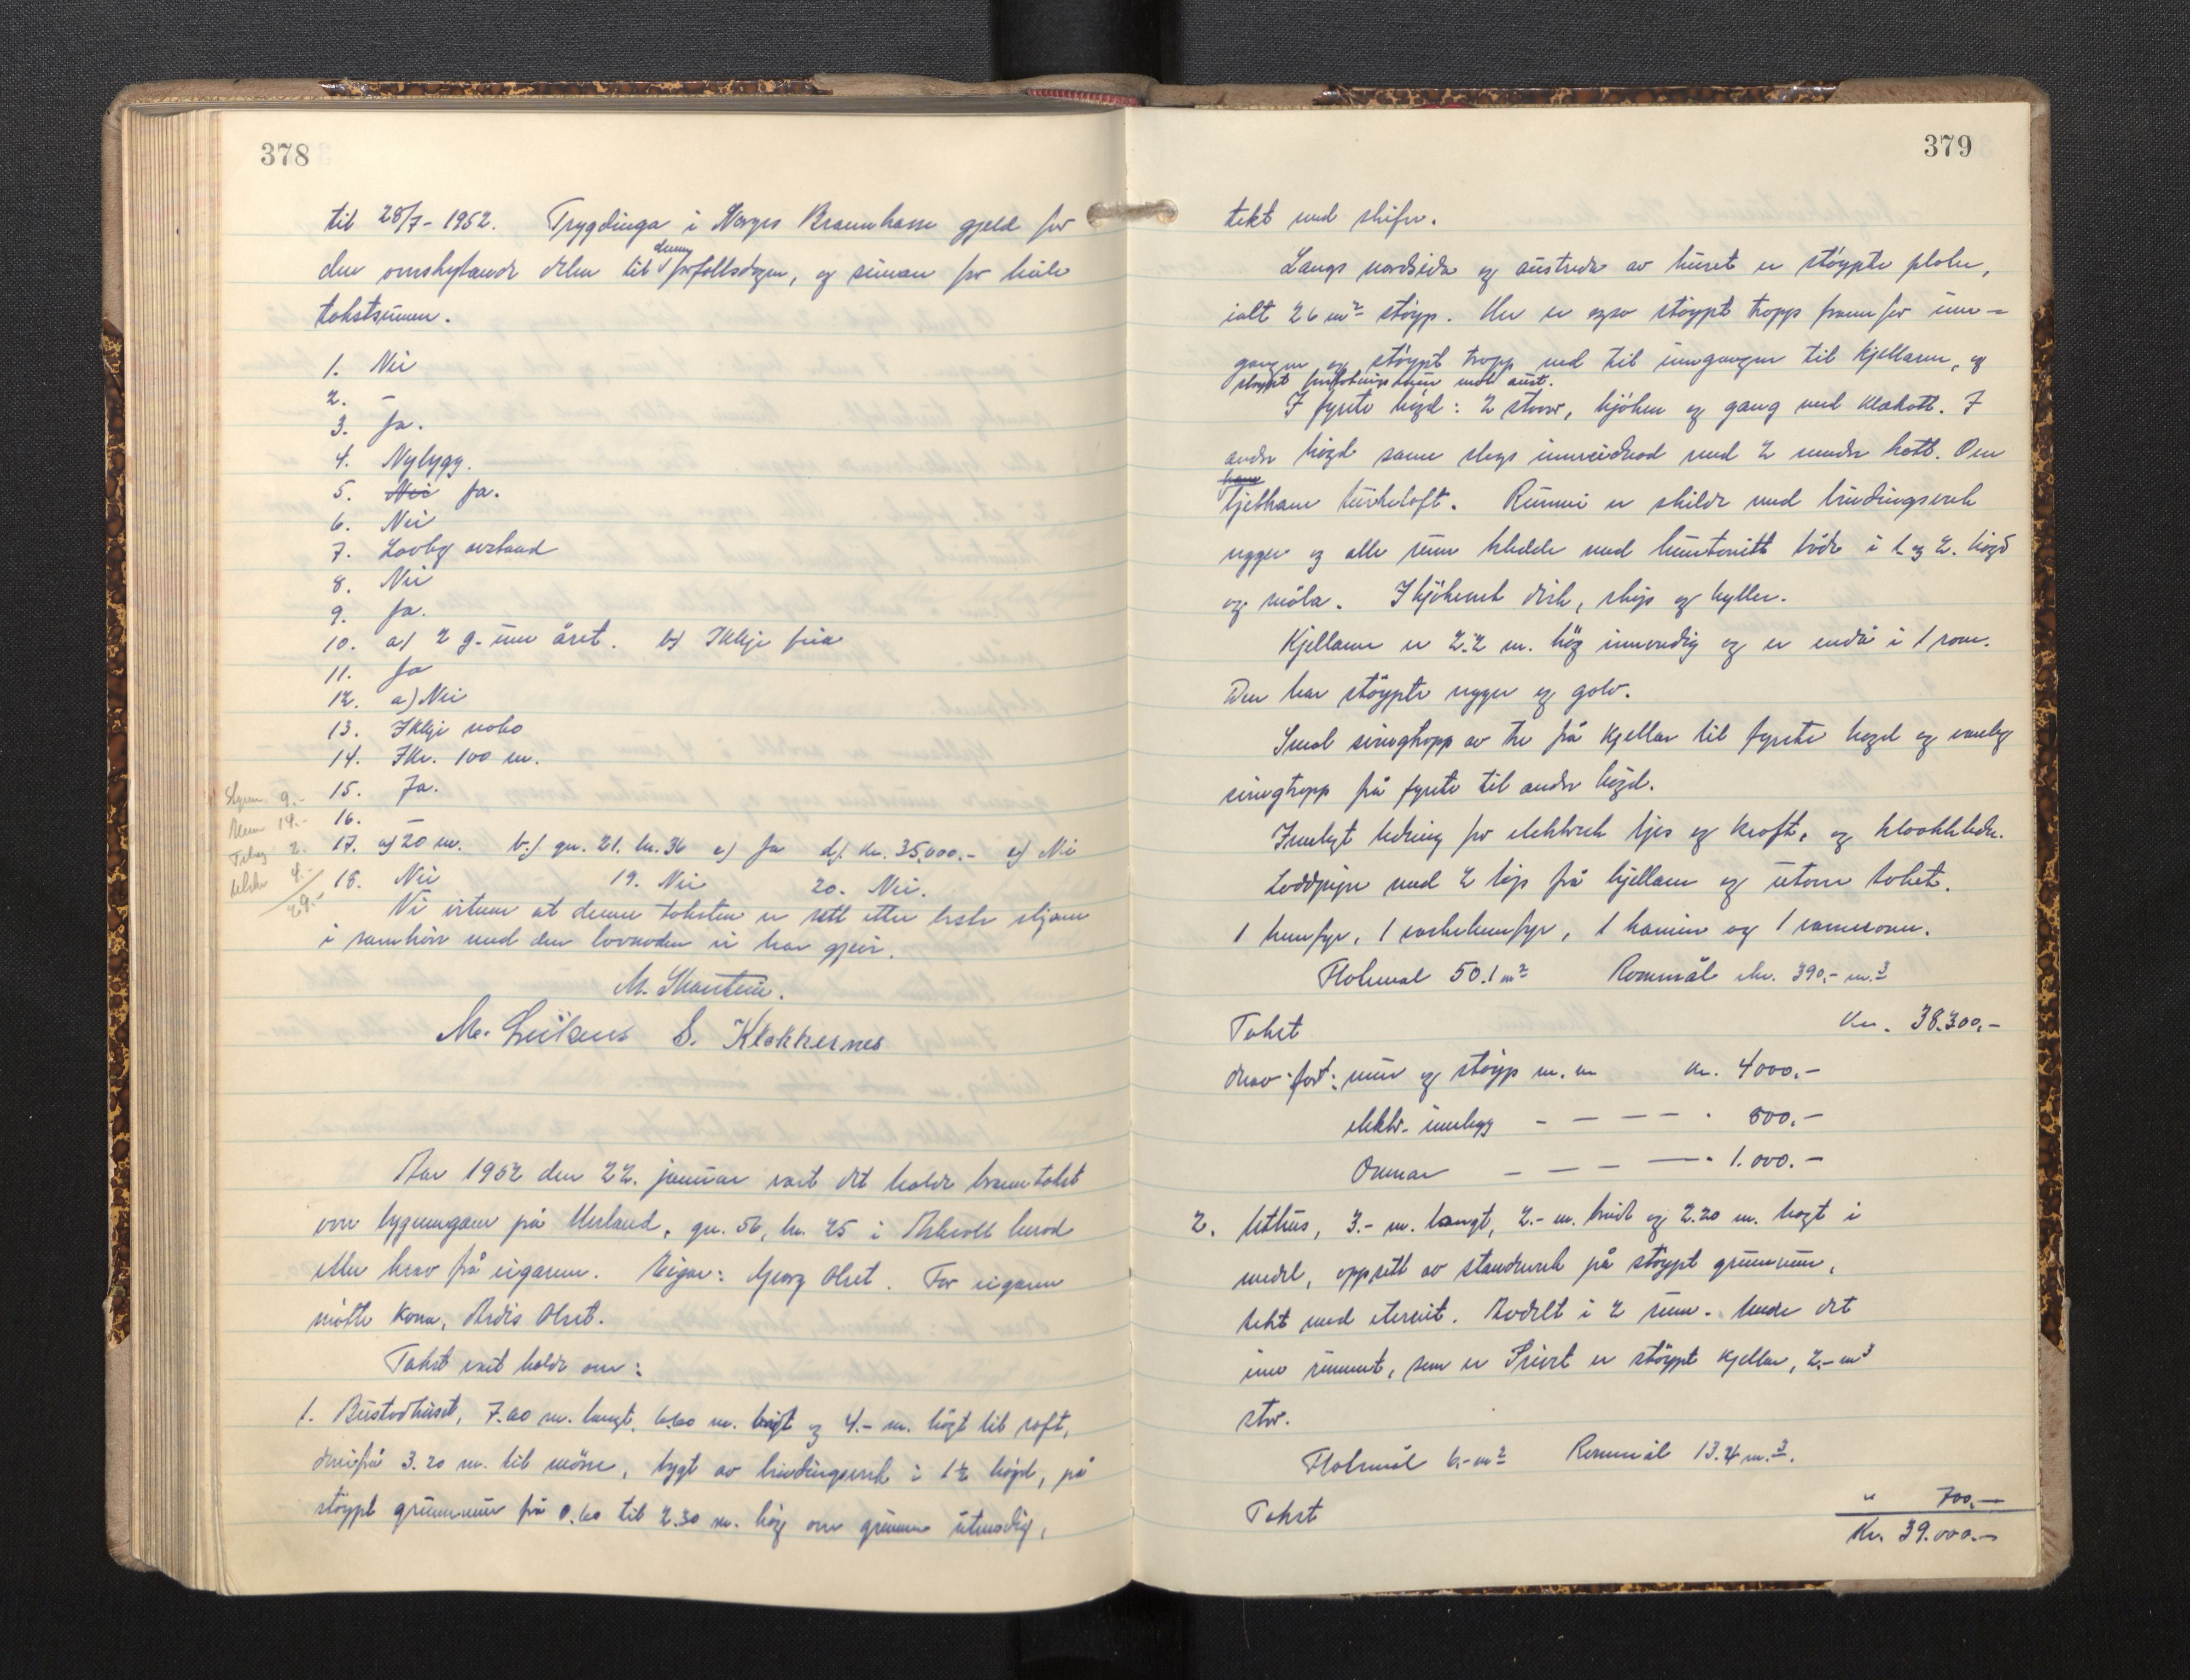 378
til 28/7-1952. Trygdinga i Norges Brannkasse gjeld for
den omskytande delen til denne forfallsdagen, og sidan for heile
takstsumen.
1. Nei
2. -
3. Ja.
4. Nybygg.
5. Nei Ja.
6. Nei
7. Lovleg avstand
8. Nei
9. Ja.
10. a) 2 g. um året. b) Ikkje feia
11. Ja
12. a) Nei
13. Ikkje nobo
14. Ikr. 100 m.
15. Ja.
16. -
17. a) 20 m. b.) gn. 21. bn. 36 c) Ja d). kr. 35,000.- e) Nei
18. Nei 19. Nei 20. Nei.
9.-
14.-
2.
4.-
29.-
Vi vitnar at denne taksten er sett etter beste skjøn
i samhøve med den lovnaden vi har gjeve.
M. Skarstein.
M. S. Klokkernes
Aar 1952 den 22. januar vart det halde branntakst
over bygningane på Merland, gn. 56, bn. 25 i Askvoll herad
etter krav frå eigaren. Eigar: Georg Olset. For eigaren
møtte kona, Ardis Olset.
Takst vart halde over:
1. Bustadhuset, 7.60 m. langt, 6.60 m. breidt og 4.- m. høgt til raft,
derifrå 3.20 m. til møne, bygt av bindingsverk i 1½ høgd, på
støypt grunnmur frå 0.60 til 2.30 m. høg over grunnen utvendig,
379
tekt med skifer.
Langs nordsida og austsida av huset er støypte plater,
ialt 26 m² støyp. Her er ogso støypt trapp framfor inn-
gangen og støypt trapp ned til inngangen til kjellaren, og
støypt mur mot aust.
I fyrste høgd: 2 stover, kjøken og gang med klekott. I
andre høgd same slags innreidnad med 2 mindre kott. Over
bjelkane turkeloft. Rummi er skilde med bindingsverk
vegger og alle rum kledde med huntonitt både i 1. og 2. høgd
og måla. I kjøkenet disk, skap og hyller.
Kjellaren er 2.2 m. høg innvendig og er endå i 1 rom.
Den har støypte vegger og golv.
Smal svingtrapp av tre frå kjellar til fyrste høgd og vanleg
svingtrapp frå fyrste til andre høgd.
Innlagt ledning for elektrisk ljos og kraft, og kloakkledn.
Loddpipe med 2 løp frå kjellaren og utover taket.
1 komfyr, 1 vaskekomfyr, 1 kamin og 1 varmeomn.
Flatemål 50.1 m² Rommål ikr. 390.- m.3
Takst Kr. 38.300.-
Herav fort: mur og støyp m. m kr. 4000.-
elektr. innlegg - - - - - 800.-
Omnar - - - - - 1.000.-
2. Uthus, 3.- m. langt, 2.- m. breidt og 2.20 m. høgt i
medel, oppsett av standverk på støypt grunnmur,
tekt med eternit. Avdelt i 2 rum. Under det
eine rummet, som er Privet er støypt kjellar, 2.- m3
stor.
Flatemål 6.- m2 Rommål 13.4 m.3.
Takst " 700.-
Kr. 39.000.-